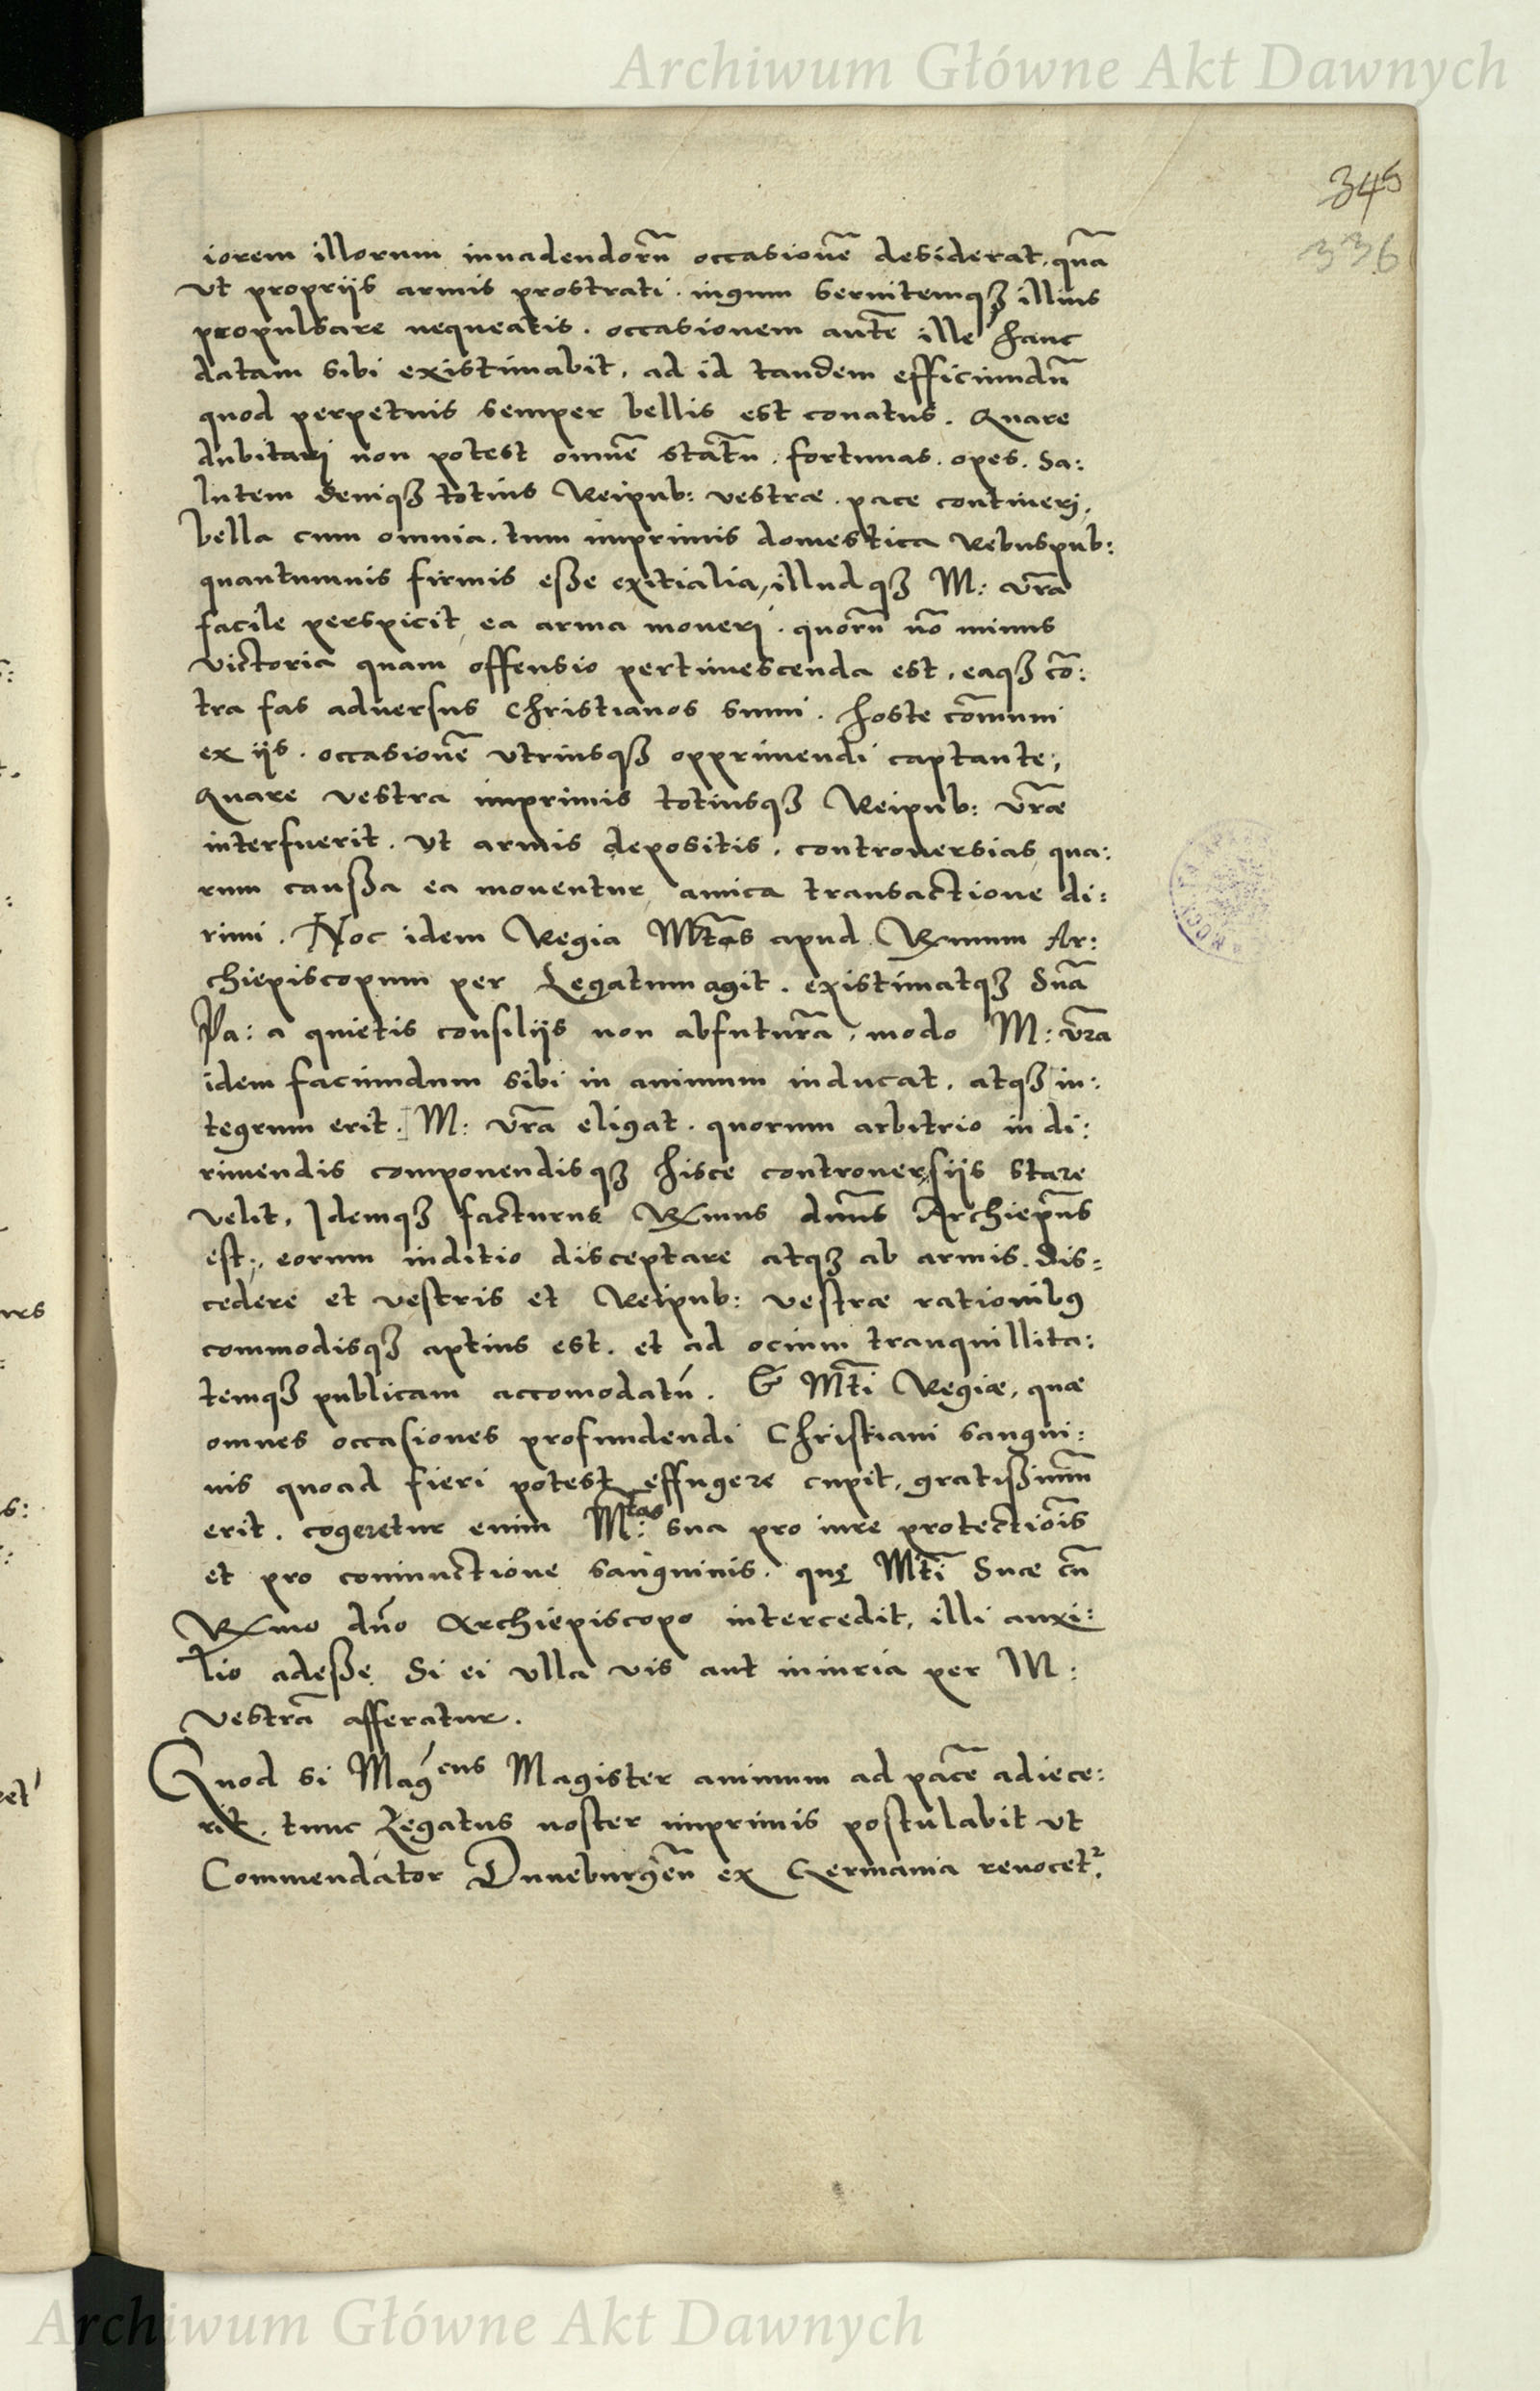 Archiwum Główne Akt Dawnych
345
336
iorem illorum inuadendorũ occasionẽ desiderat. quã
vt propriis armis prostrati. iugum seruitemqꝫ illius
propulsare nequeatis. occasionem autẽ ille hanc
datam sibi existimabit, ad id tandem efficiundũ
quod perpetuis semper bellis est conatus. Quare
dubitari non potest omnẽ statũ. fortunas. opes. Sa:
lutem deniqꝫ totius Reipub: vestrae. pace contineri,
bella cum omnia. tum imprimis domestica Rebuspub:
quantumuis firmis eße exitialia, illudqꝫ M: vrã
facile perspicit, ea arma moueri. quorũ nõ minus
victoria quam offensio pertimescenda est, eaqꝫ cõ:
tra fas aduersus Christianos sumi. hoste cõmuni
ex iis. occasionẽ vtriusqꝫ opprimendi captante;
Quare vestra imprimis totiusqꝫ Reipub: vrãe
interfuerit. vt armis depositis, controuersias qua:
rum caußa ea mouentur amica transactione di:
rimi. Hoc idem Regia Mtãs apud Rmum Ar:
chiepiscopum per Legatum agit. existimatqꝫ Suã
Pa: a quietis consiliis non abfuturã, modo M: vrã
idem faciundum sibi in animum inducat, atqꝫ in:
tegrum erit. M: vrã eligat. quorum arbitrio in di:
rimendis componendisqꝫ hisce controuersiis stare
velit, Idemqꝫ facturus Rmus dnũs Archiepũs
est;, eorum iuditio disceptare atqꝫ ab armis. dis=
cedere et vestris et Reipub: vestrae rationibꝰ
commodisqꝫ aptius est. et ad ocium tranquillita:
temqꝫ publicam accomodatũ. Et Mtĩ Regiae, quae
omnes occasiones profundendi Christiani sangui:
nis quoad fieri potest effugere cupit, gratißimũ
erit. cogeretur enim M:tas sua pro iure protectiõis
et pro coniunctione sanguinis. quę Mtĩ Suae cũ
Rmo dño Archiepiscopo intercedit, illi auxi:
lio adeße. Si ei vlla vis aut iniuria per M:
vestrã afferatur.
Quod si Mag:cus Magister animum ad pacẽ adiece:
rit. tunc Legatus noster imprimis postulabit vt
Commendator Duneburgeñ ex Germania reuocetr.
Archiwum Główne Akt Dawnych